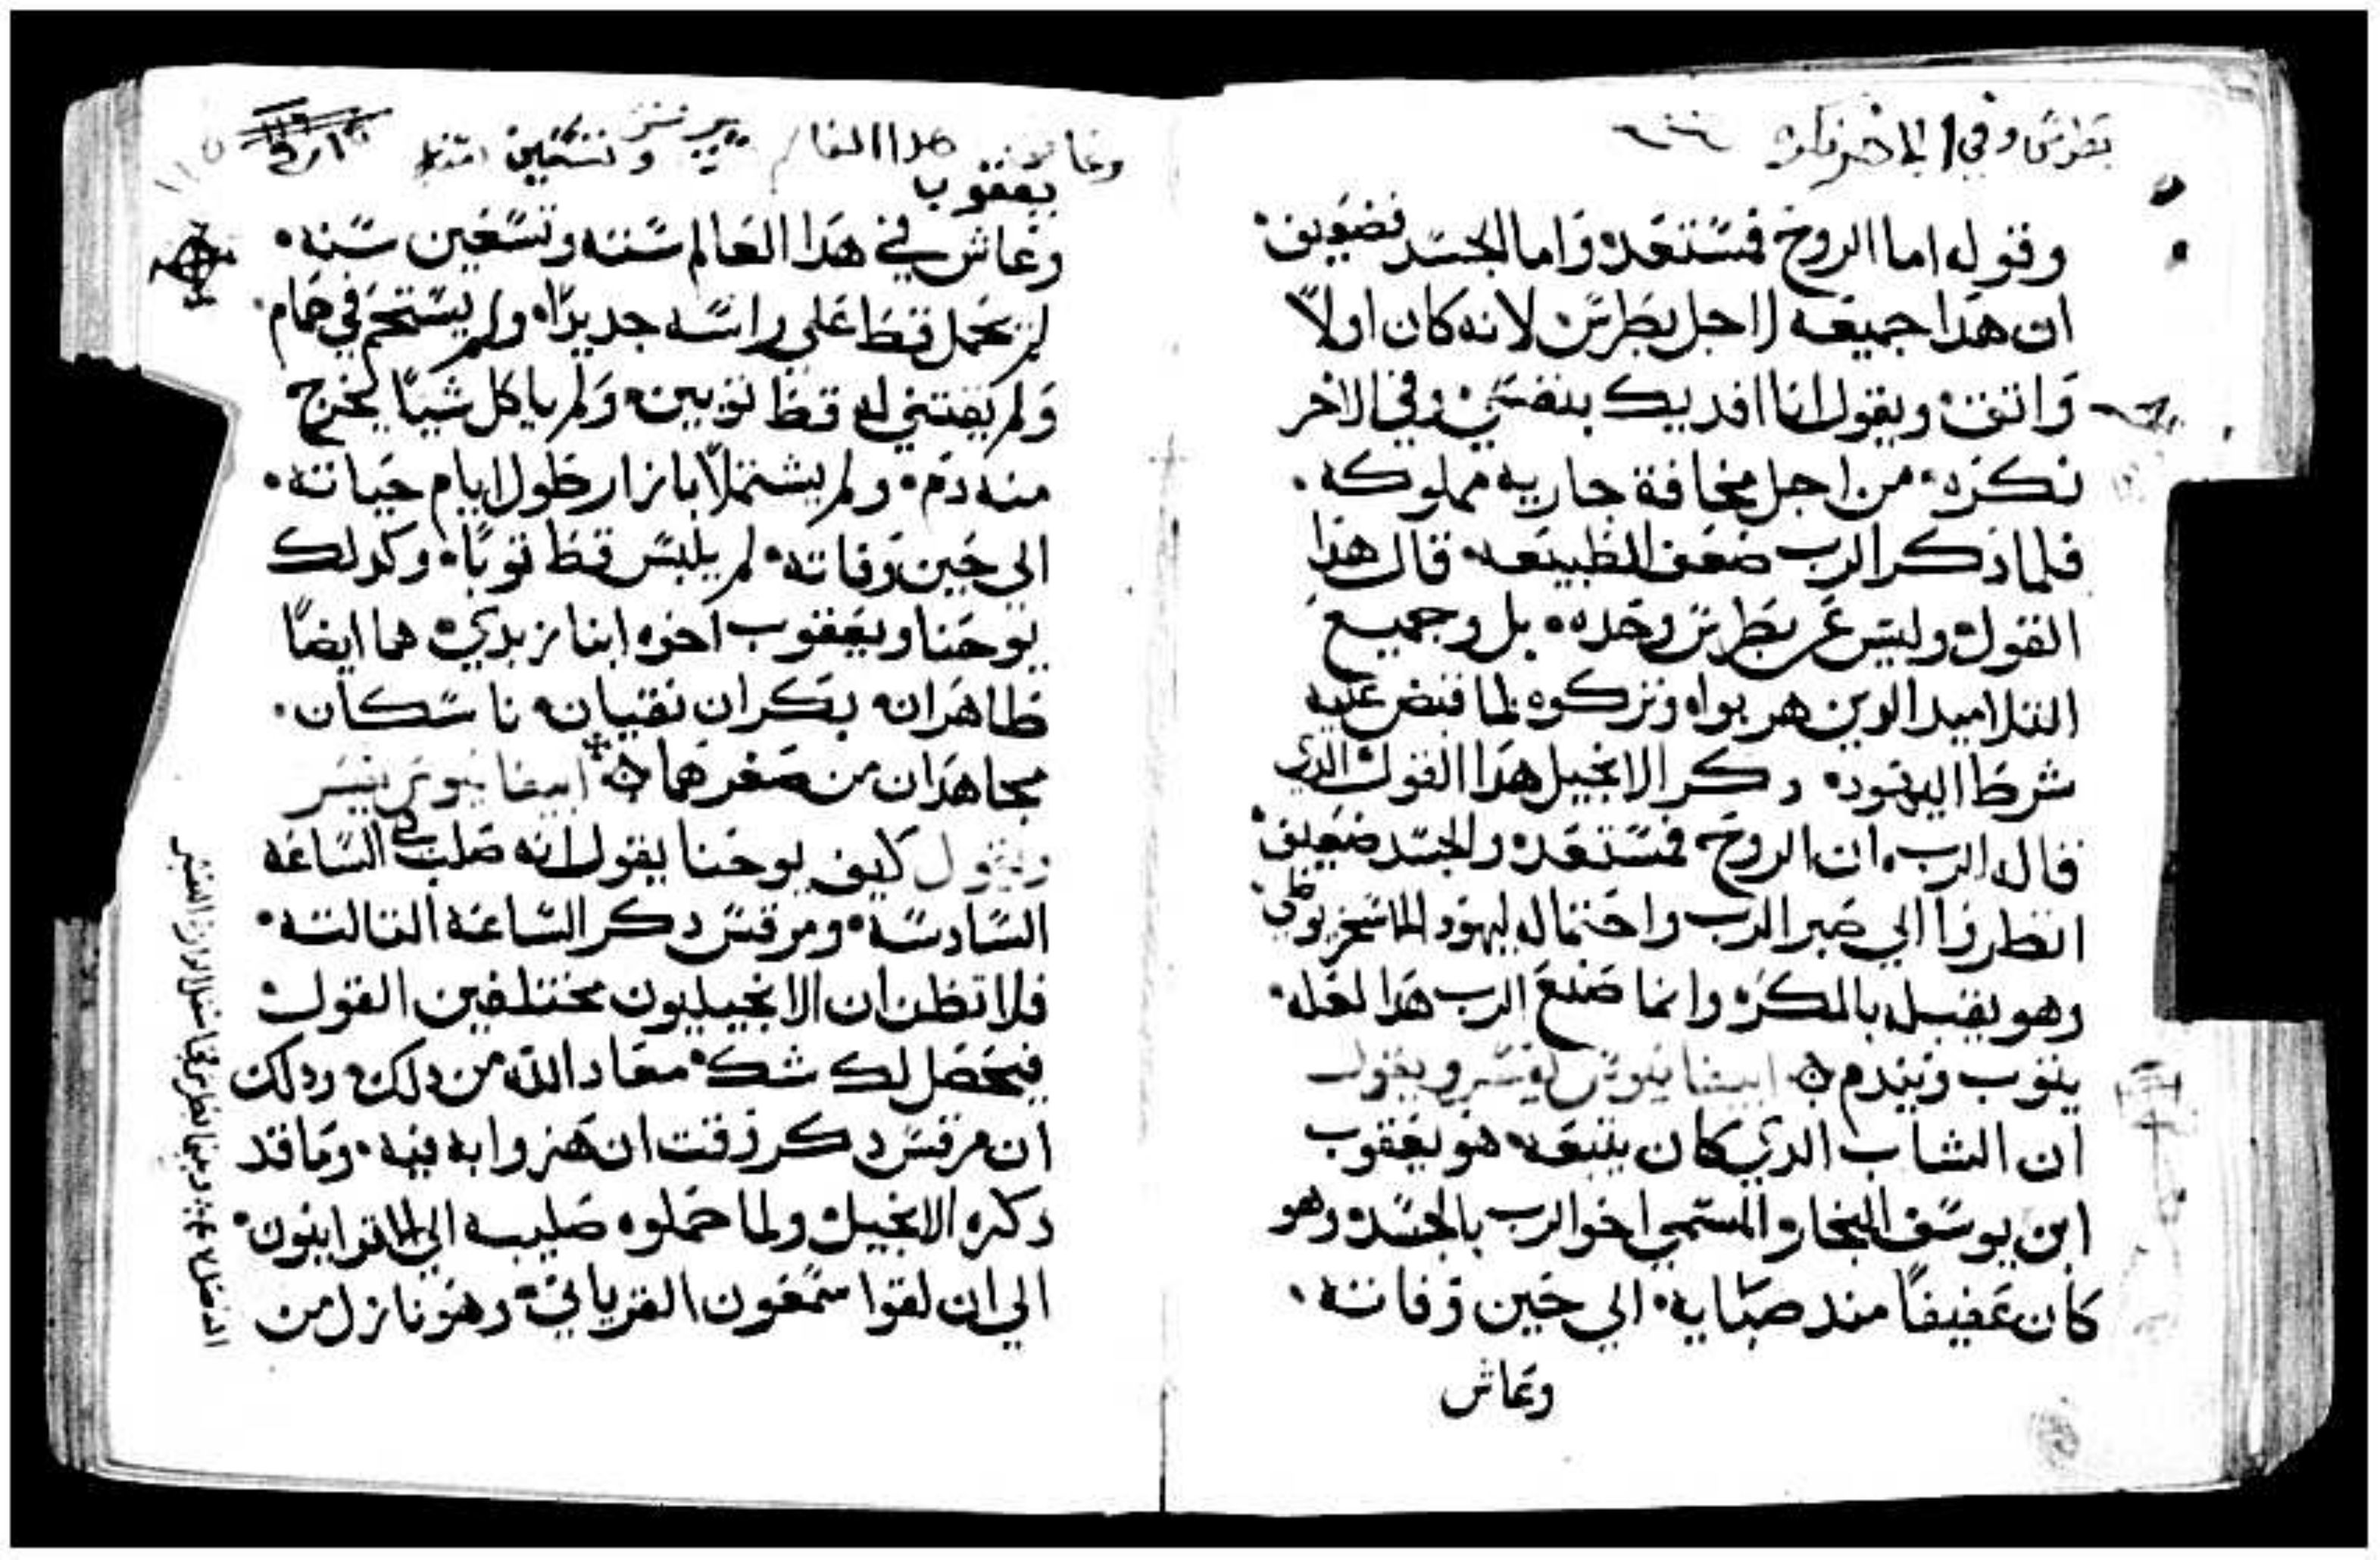 بطرس وفي الاخر نكره
وقوله اما الروح فمستعده واما الجسد فضعيف
ان هدا جميعه لاجل بطرس لانه كان اولاً
واتق ويقول انا افديك بنفسي وفي الاخر
نكره من اجل مخافة جاريه مملوكه
فلما ذكر الرب ضعف الطبيعه قال هذا
القول وليس عن بطرس وحده بل وجميع
التلاميد الدين هربوا وتركوه لما قبض عليه
شرط اليهود دكر الانجيل هدا القول الدي
قاله الرب ان الروح فمستعده والجسد ضعيف
انظروا الي صبر الرب واحتماله ليهودا الاسخريوطي
وهو يقبله بالمكر وانما صنع الرب هدا لعله
يتوب ويندم ابيفانيوس يفسر ويقول
ان الشاب الدي كان يتبعه هو يعقوب
ابن يوسف النجار المسمي اخو الرب بالجسد وهو
كان عفيفاً مند صبايه الي حين وفاته
وعاش
هدا العالم وتسعين
يعقوب
وعاش في هدا العالم ستته وتسعين سنه
لم يحمل قط علي راسه حديداً ولم يستحم في حمام
ولم يقتني له قط توبين ولم ياكل شياً يخرج
منه دم ولم يشتمل بازار طول ايام حياته
الي حين وفاته لم يلبس قط توباً وكدلك
يوحنا ويعقوب اخوه ابنا زبدي هما ايضاً
طاهران بكران نقيان ناسكان
مجاهدان من صغرهما ابيفانيوس يفسر
ويقول كيف يوحنا يقول انه صلب في الساعه
السادسه ومرقس دكر الساعه التالته
فلا تظن ان الانجيليون مختلفين القول
فيحصل لك شك معاد الله من دلك ودلك
ان مرقس دكر وقت ان هزوا به فيه وما قد
دكره الانجيل ولما حملوه صليبه الي الاقرانيون
الي ان لقوا سمعون القرياني وهو نازل من